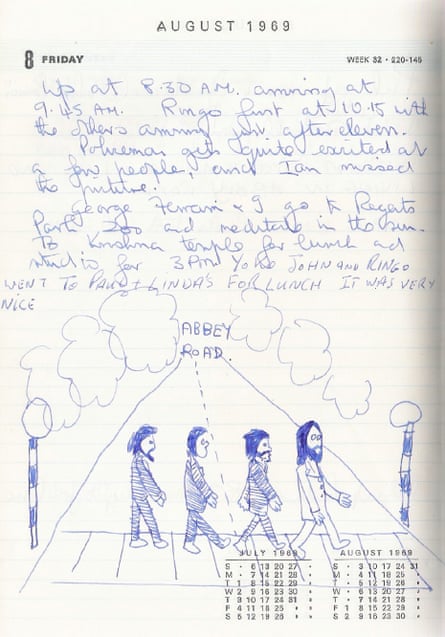 AUGUST 1969
8 FRIDAY
WEEK 32 • 220-145
Up at 8.30 A.M. arriving at
9.45 A.M. Ringo first at 10.15 with
the others arriving just after eleven.
Policeman gets quite excited at
a few people, and Ian missed
the picture.
George Ferrari & I go to Regents
Park Zoo and meditate in the sun.
To Krishna temple for lunch and
studio for 3PM JOHN AND RINGO
WENT TO PAUL & LINDA'S FOR LUNCH IT WAS VERY
NICE
ABBEY
ROAD.
JULY 1969 AUGUST 1969
S • 6 13 20 27 • S • 3 10 17 24 31
M • 7 14 21 28 • M • 4 11 18 25 •
T 1 8 15 22 29 • T • 5 12 19 26 •
W 2 9 16 23 30 • W • 6 13 20 27 •
T 3 10 17 24 31 • T • 7 14 21 28 •
F 4 11 18 25 • • F 1 8 15 22 29 •
S 5 12 19 26 • • S 2 9 16 23 30 •